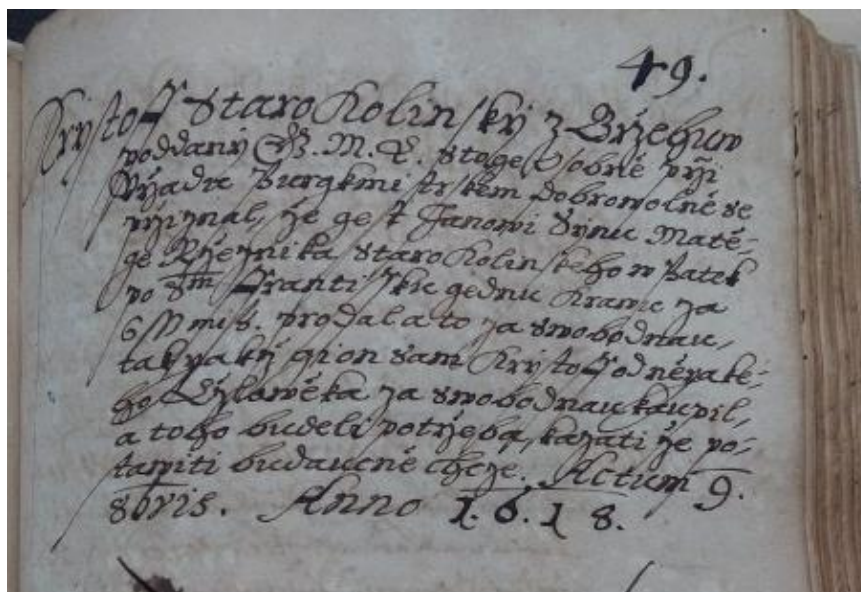 49.
Krystoff Staro Kolinský z Brzehuw
poddaný G. M. C. stoge osobně přzi
Auřzadu Purgkmistrském dobrowolně se
přziznal, že gest Janowi Synu Matě-
ge Ržeznika Staro Kolinskeho w Patek
po Sm Frantissku gednu Krawu za
6 mis. prodal a to za swobodnau,
tak yakž gi on sam Krystoff od něyaké-
ho Cžlowěka za swobodnau kaupil,
a toho budeli potřzeba, kazati že po-
stawiti budaucně chcze. Actum 9.
8bris. Anno 1.6.18.